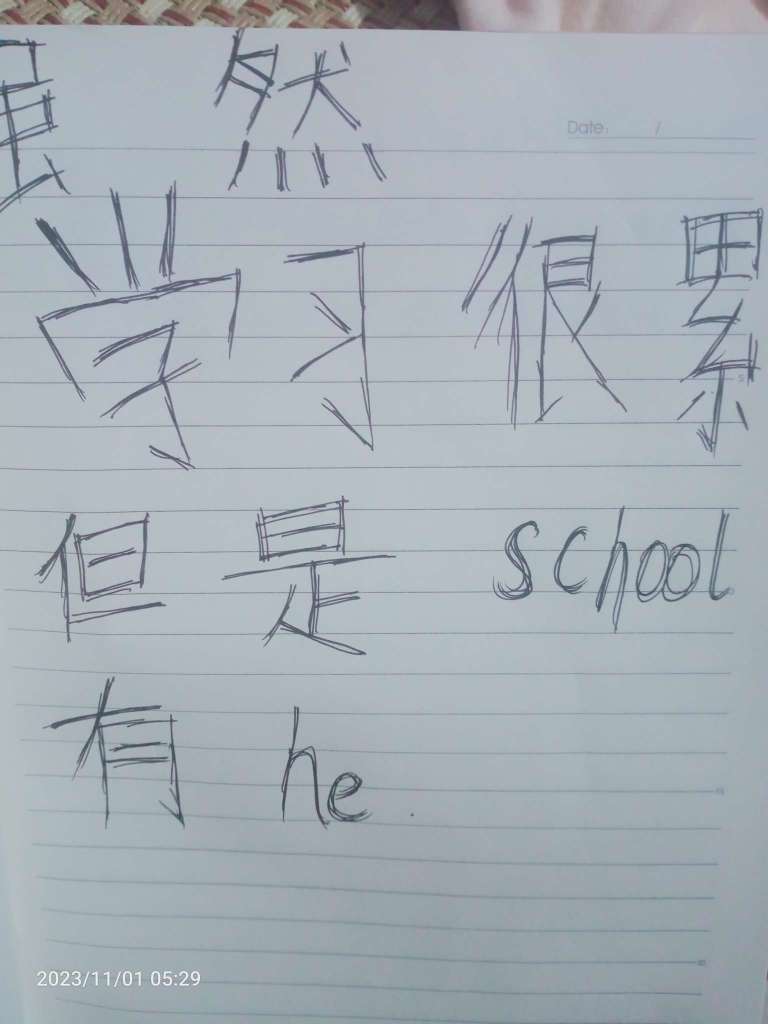 虽然
Date: /
学习很累
但是 school
有 he.
2023/11/01 05:29